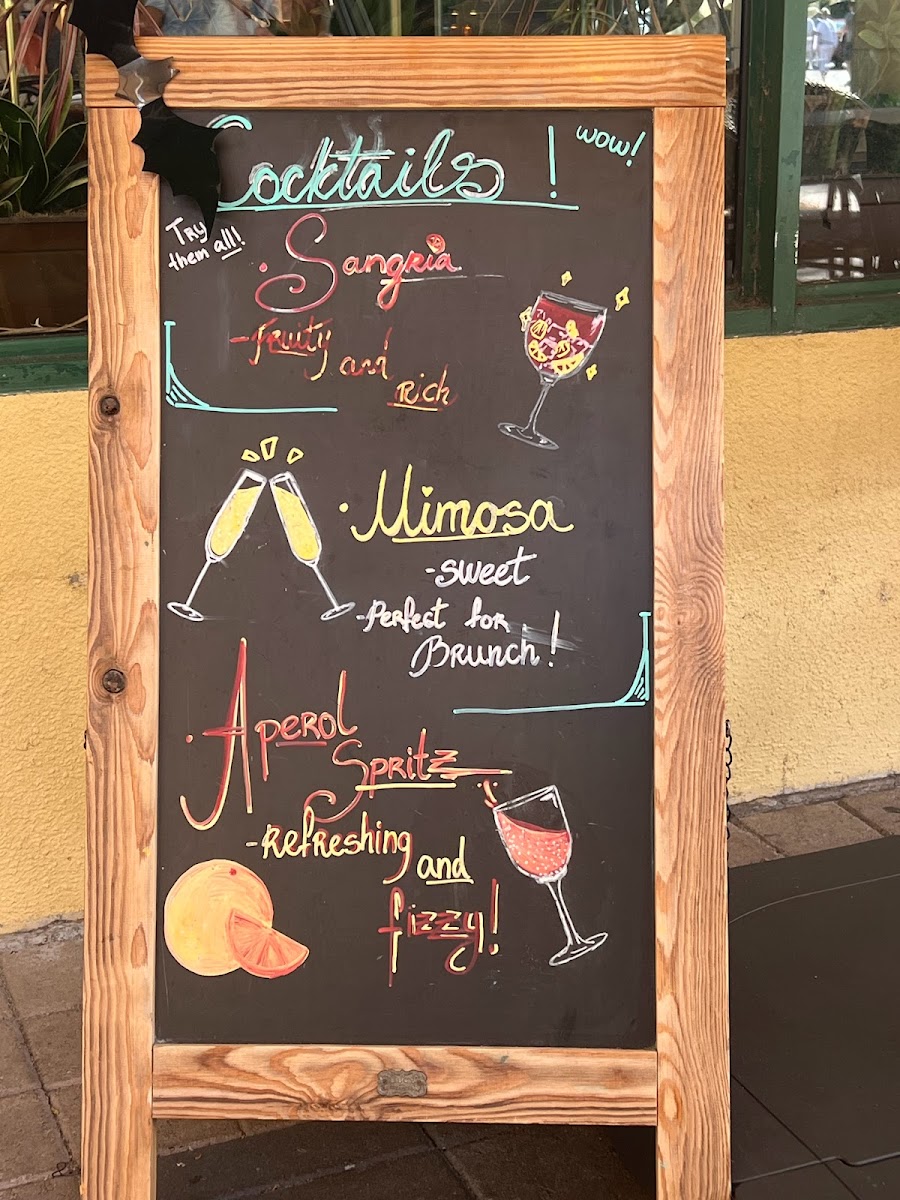 Cocktails!
wow!
Try
them all!
• Sangria
- Fruity
and
Rich
• Mimosa
- sweet
- Perfect for
Brunch!
• Aperol
Spritz
- Refreshing
and
fizzy!